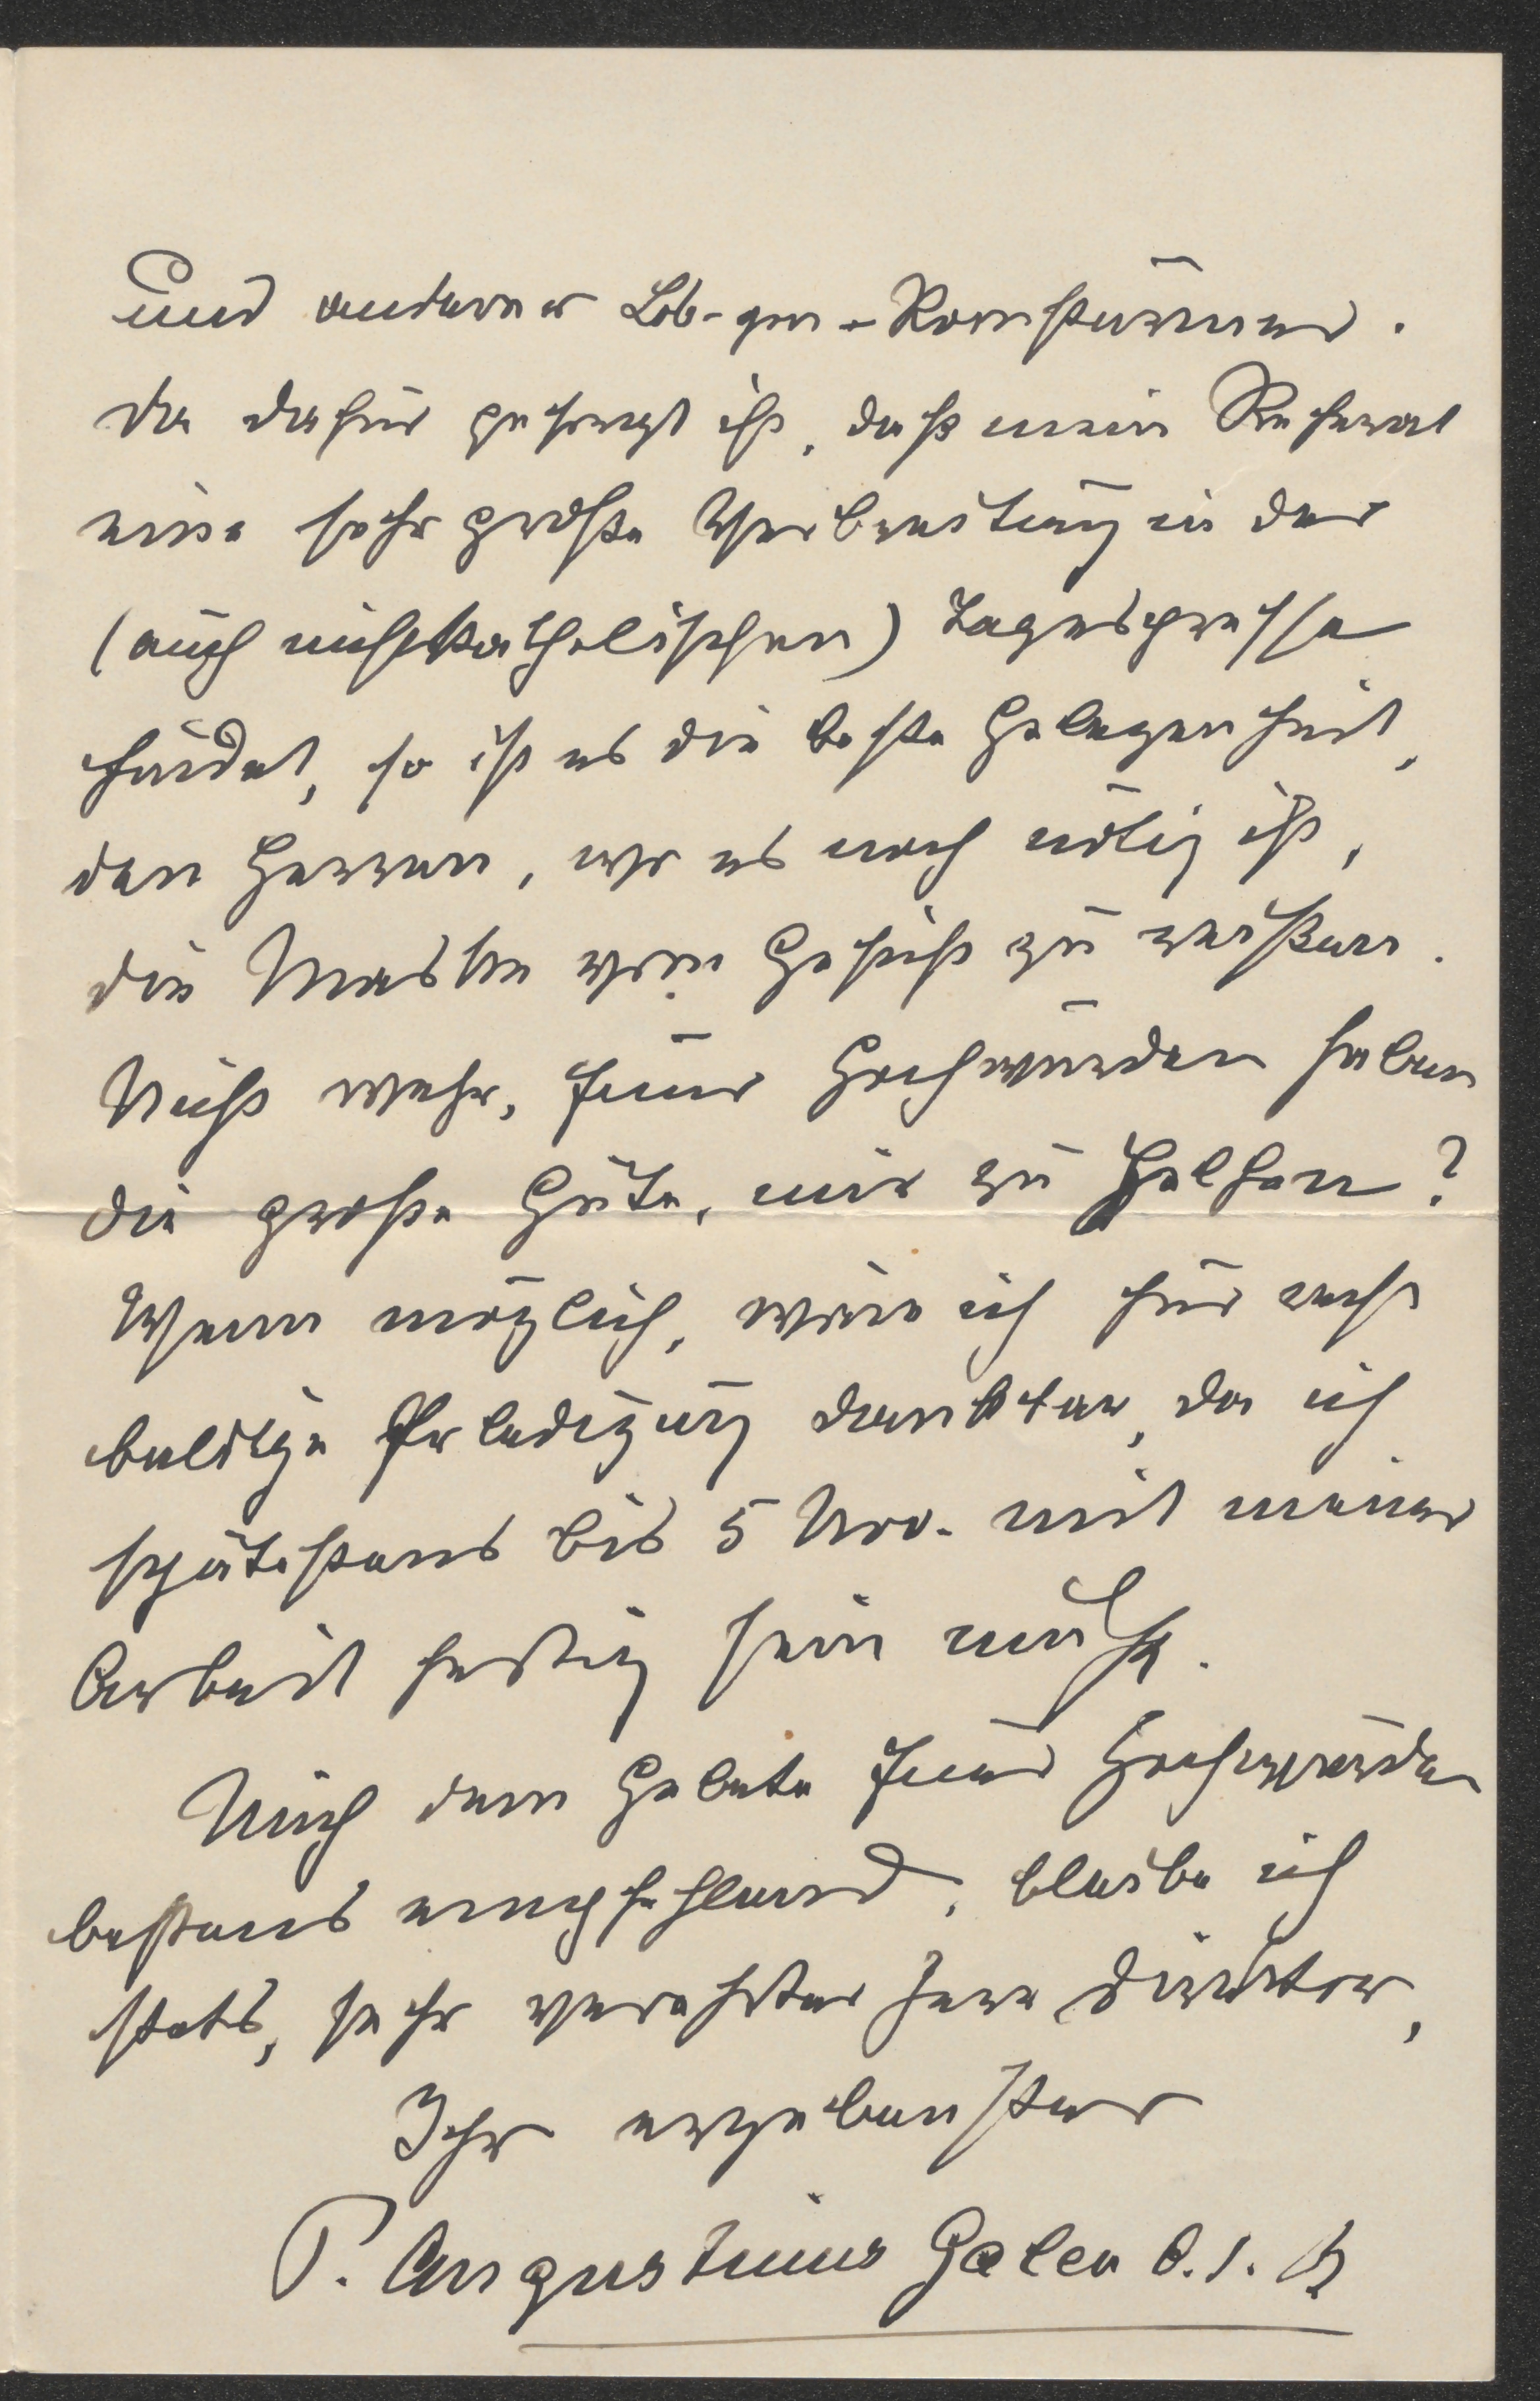 und anderer Los-von-Romstürmer.
Da dafür gesorgt ist, daß mein Referat
eine sehr große Verbreitung in der
(auch nichtkatholischen) Tagespresse
findet, so ist es die beste Gelegenheit,
den Herren, wo es noch nötig ist,
die Maske vom Gesicht zu reißen.
Nicht wahr, Euer Hochwürden haben
die große Güte, mir zu helfen?
Wenn möglich, wäre ich für recht
baldige Erledigung dankbar, da ich
spätestens bis 5 Nov. mit meiner
Arbeit fertig sein muß.
Mich dem Gebete Euer Hochwürden
bestens empfehlend, bleibe ich
stets, sehr verehrter Herr Direktor,
Ihr ergebenster
P. Augustinus Galen O.S.B